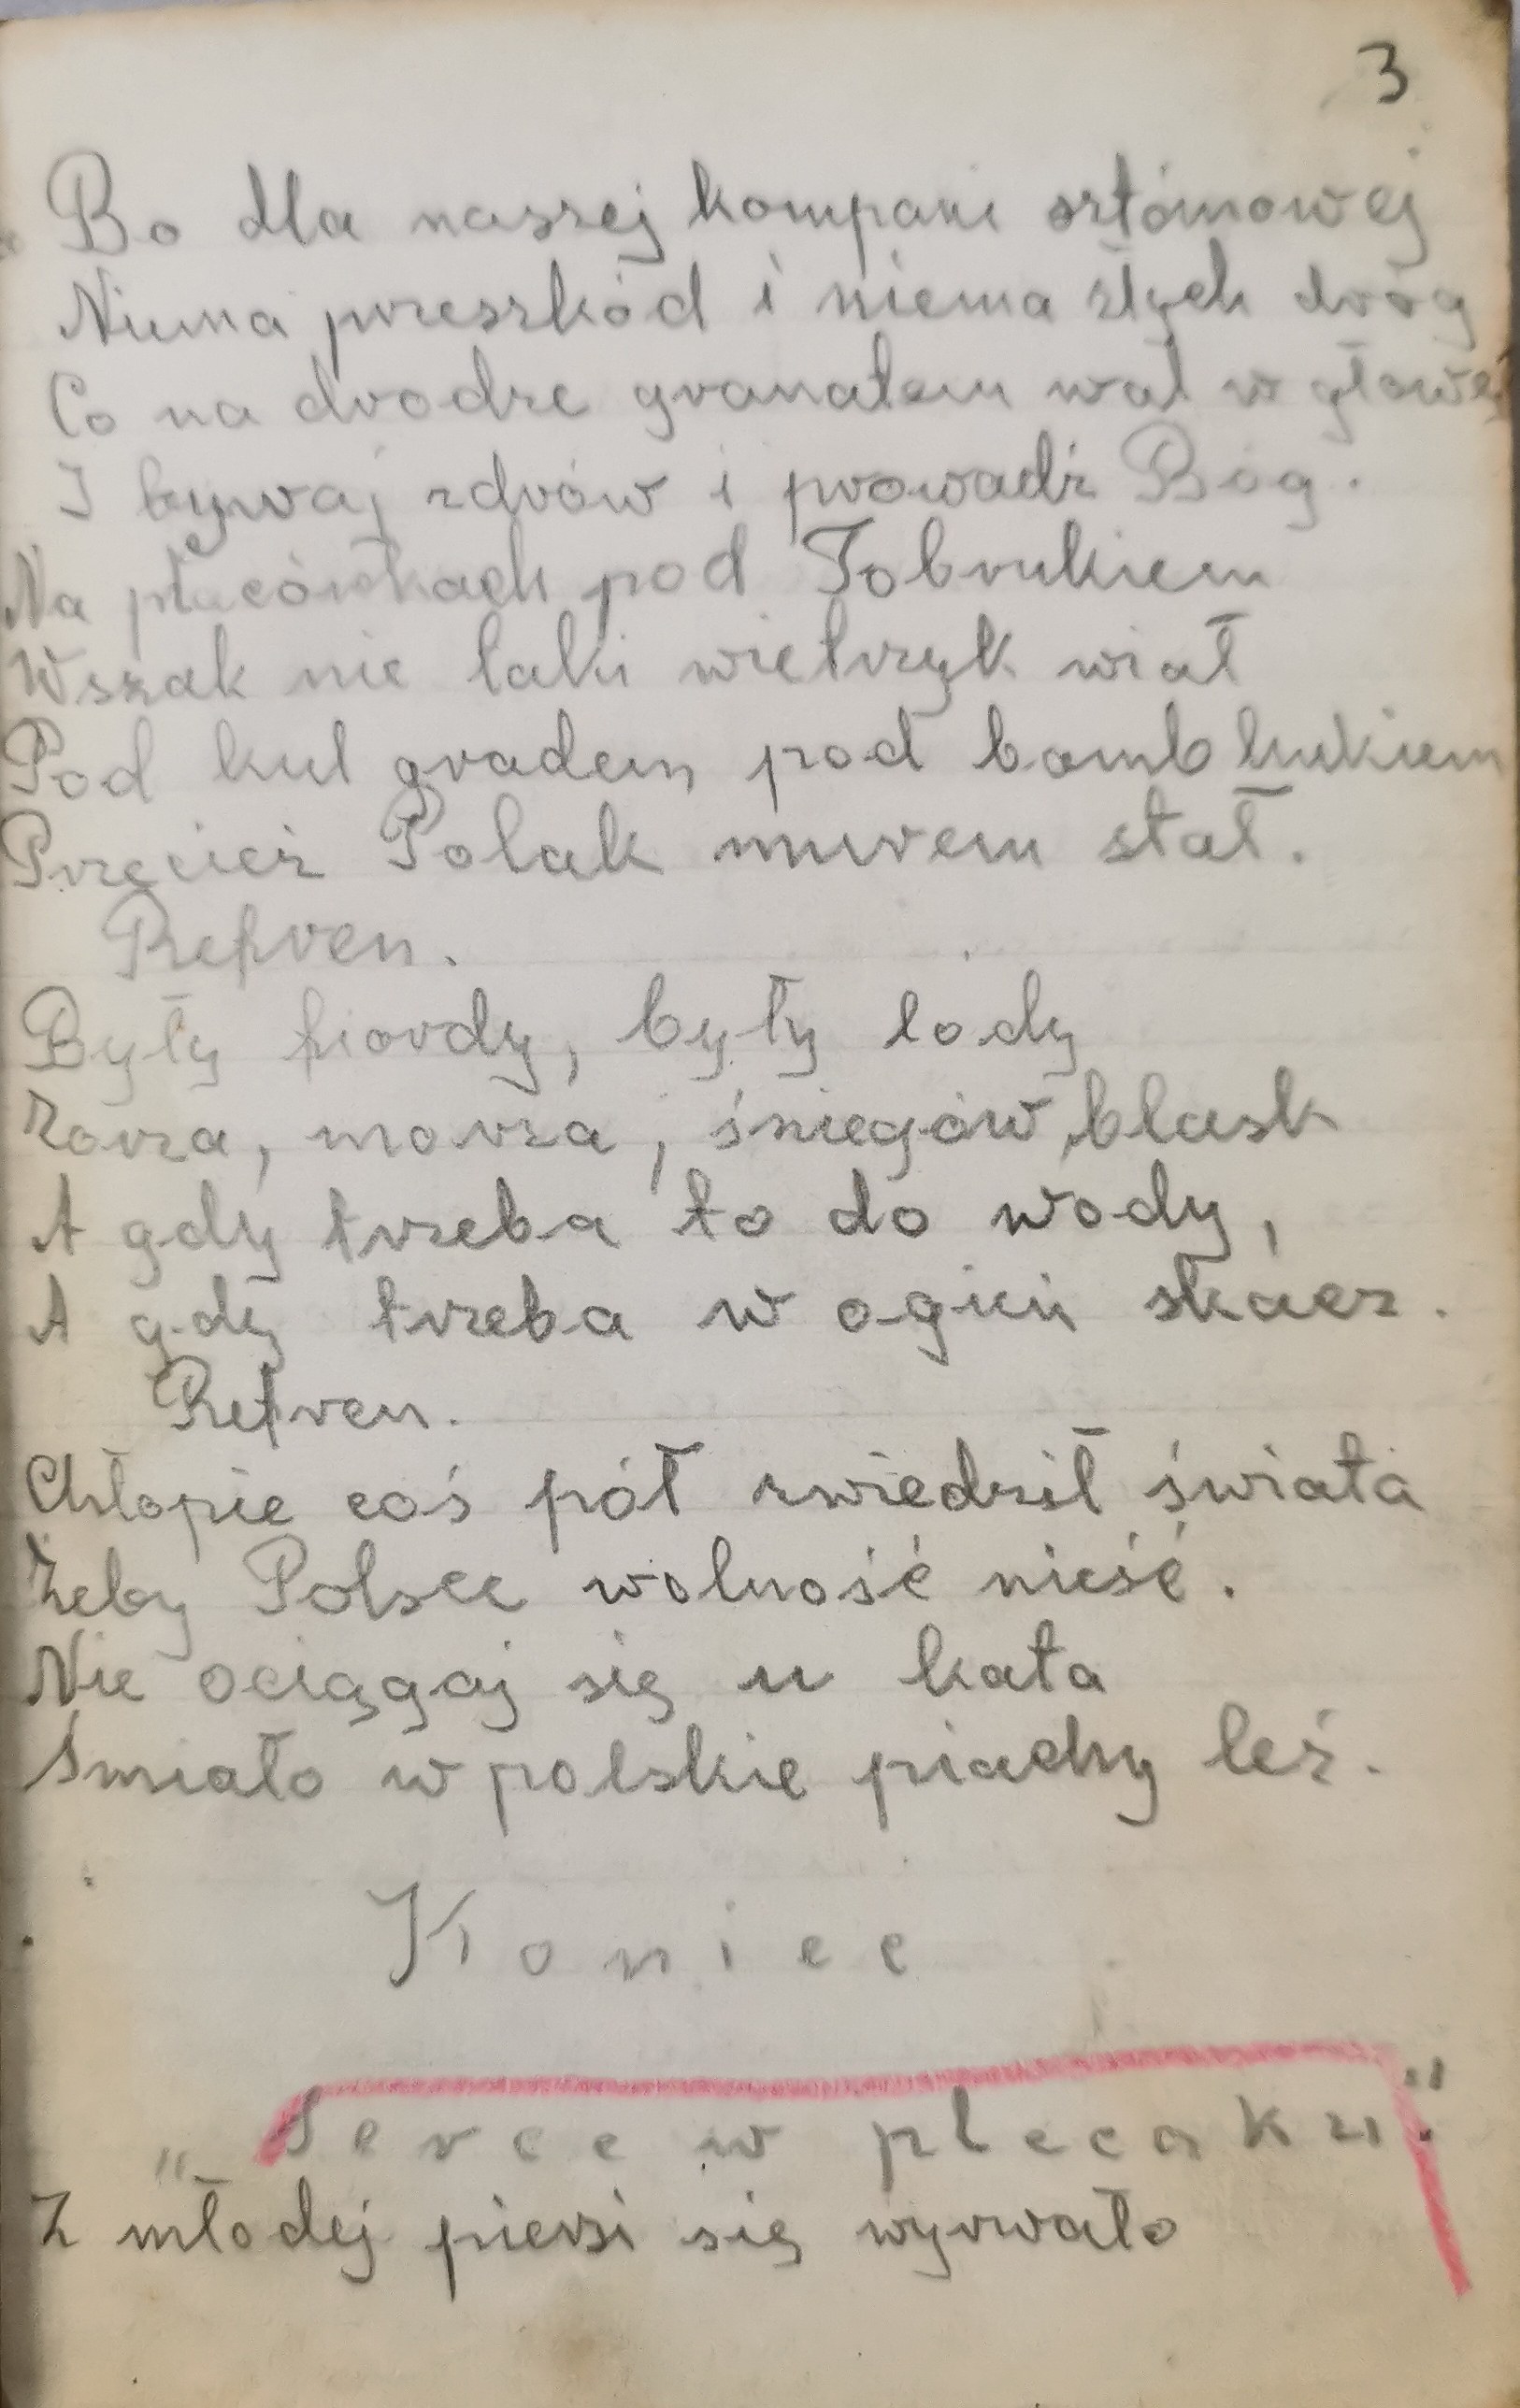 3
Bo dla naszej kompani sztómowej
Niema przeszkód i niema złych dróg
Co na drodze granatem wal w głowę
I bywaj zdrów i prowadź Bóg.
Na placówkach pod Tobrukiem
Wszak nie taki wietrzyk wiał
Pod kul gradem pod bomb hukiem
Przecież Polak murem stał.
Refren.
Były fiordy, były lody
Zorza, morza, śniegów blask
A gdy trzeba to do wody,
A gdy trzeba w ogień skacz.
Refren.
Chłopie coś pół zwiedził świata
Żeby Polsce wolność nieść.
Nie ociągaj się u kata
Śmiało w polskie piachy leź.
Koniec
„Serce w plecaku"
Z młodej piersi się wyrwało